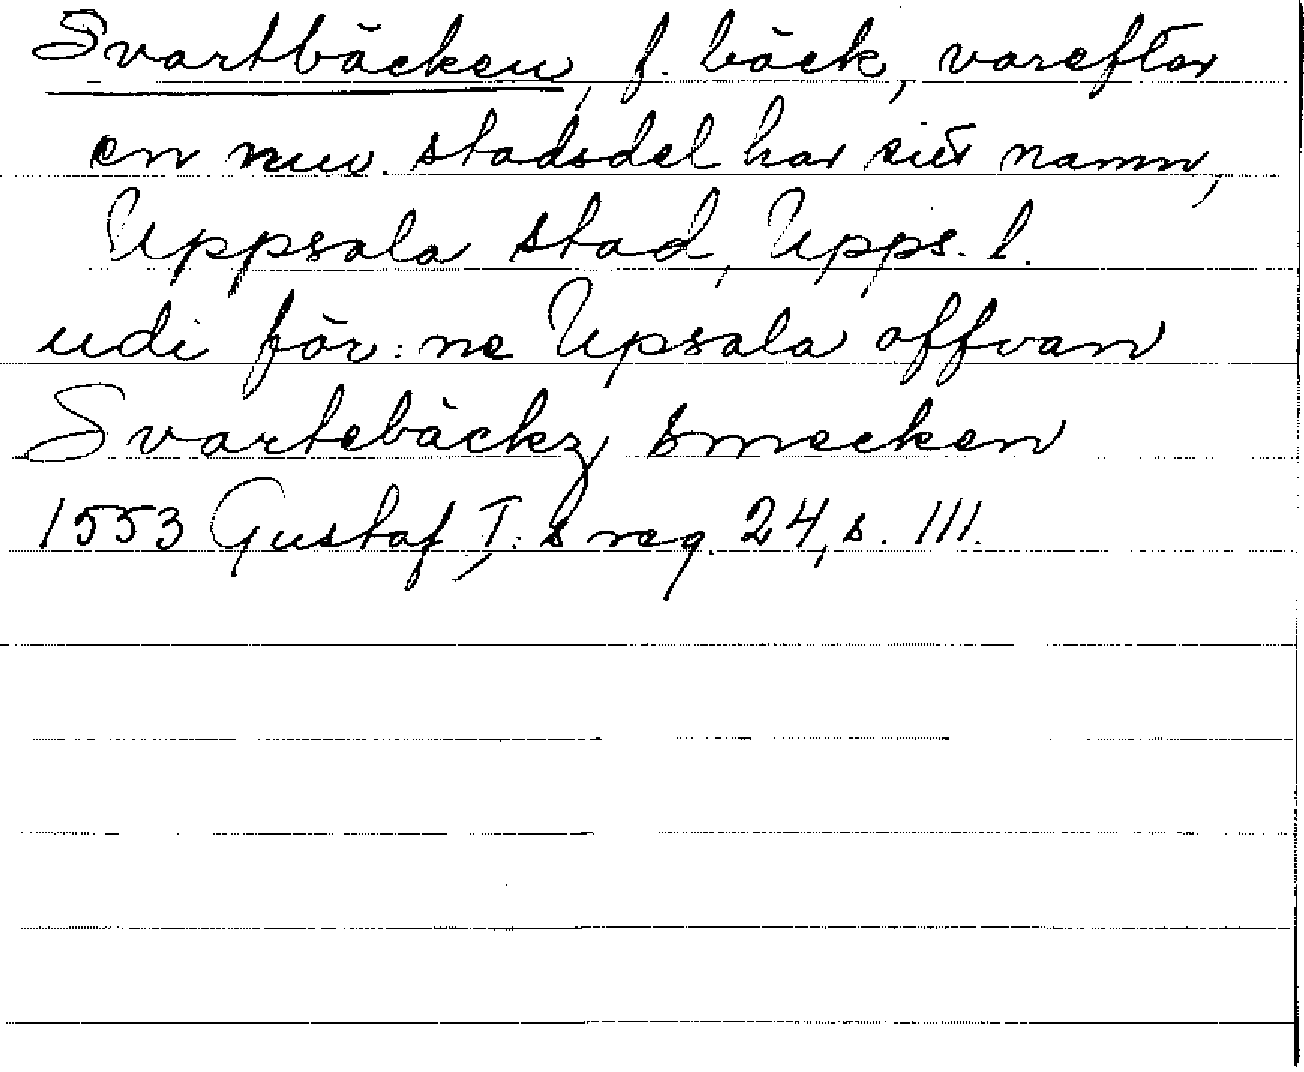 Svartbäcken, f. bäck, varefter
en nuv. stadsdel har sitt namn,
Uppsala stad, Upps. l.
udi för:ne Upsala offvan
Svartebäckz smecken
1553 Gustaf I:s reg. 24, s. 111.